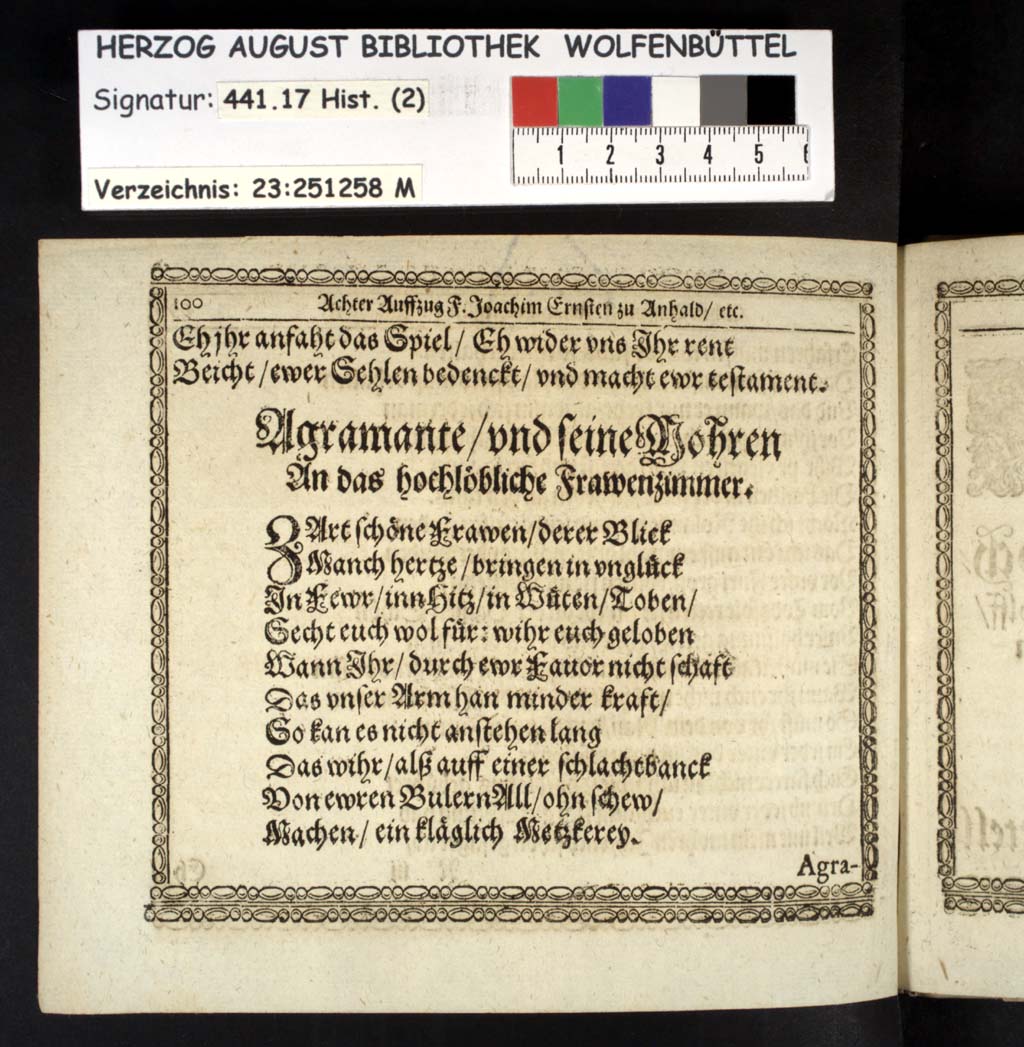 HERZOG AUGUST BIBLIOTHEK WOLFENBÜTTEL
Signatur: 441.17 Hist. (2)
1 2 3 4 5 6
Verzeichnis: 23:251258 M
100 Achter Auffzug F. Joachim Ernsten zu Anhald/ etc.
Eh jhr anfaht das Spiel/ Eh wider vns Jhr rent
Beicht/ ewer Sehlen bedenckt/ vnd macht ewr testament.
Agramante/ vnd seine Mohren
An das hochlöbliche Frawenzimmer.
ZArt schöne Frawen/ derer Blick
Manch hertze/ bringen in vnglück
Jn Fewr/ inn Hitz/ in Wüten/ Toben/
Secht euch wol für: wihr euch geloben
Wann Jhr/ durch ewr Fauor nicht schaft
Das vnser Arm han minder kraft/
So kan es nicht anstehen lang
Das wihr/ alß auff einer schlachtbanck
Von ewren Bulern All/ ohn schew/
Machen/ ein kläglich Metzkerey.
Agra-